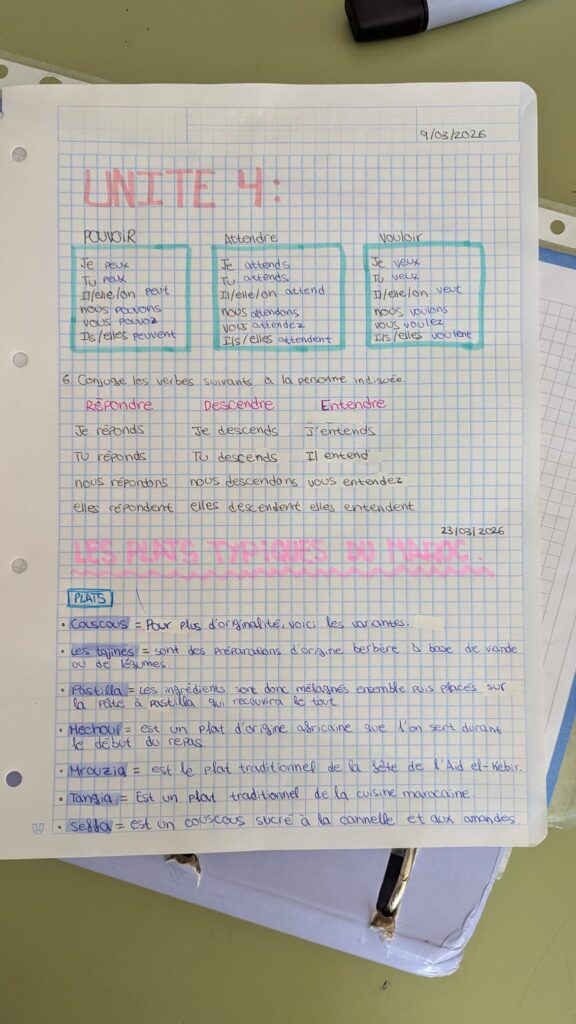 9/03/2026
UNITE 4:
POUVOIR Attendre Vouloir
Je peux
Tu peux
Il/elle/on peut
nous pouvons
vous pouvez
Ils/elles peuvent
Je attends
Tu attends
Il/elle/on attend
nous attendons
vous attendez
Ils/elles attendent
Je veux
Tu veux
Il/elle/on veut
nous voulons
vous voulez
Ils/elles veulent
6. Conjuge les verbes suivants à la personne indiquée
Répondre Descendre Entendre
Je réponds Je descends J'entends
Tu réponds Tu descends Il entend
nous répondons nous descendons vous entendez
elles répondent elles descendent elles entendent
23/03/2026
LES PLATS TYPIQUES DU MAROC.
PLATS
• Couscous = Pour plus d'originalité, voici les variantes.
• Les tajines = sont des préparations d'origine berbère à base de viande
ou de légumes.
• Pastilla = Les ingrédients sont donc mélagnés ensemble puis placés sur
la pâte à pastilla qui recouvrira le tout
• Mechoui = est un plat d'origine africaine que l'on sert durant
le début du repas.
• Mrouzia = est le plat traditionnel de la fête de l'Aid el-Kebir.
• Tangia = Est un plat traditionnel de la cuisine marocaine.
• Seffa = est un couscous sucré à la cannelle et aux amandes.